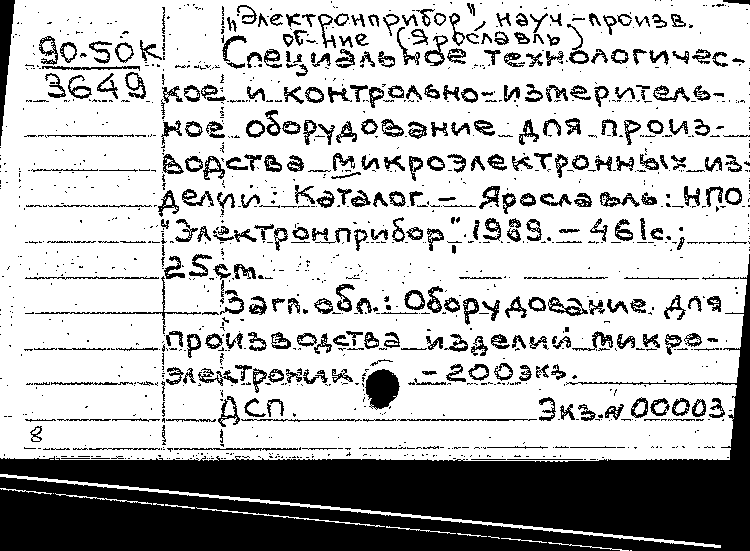 "Электронприбор", науч.-произв.
об-ние (Ярославль)
90-50К
3649
Специальное технологичес-
кое и контрольно-измеритель-
ное оборудование для произ-
водства микроэлектронных из-
делий: Каталог. - Ярославль: НПО
"Электронприбор", 1989. - 461с.;
25cm.
Загл. обл.: Оборудование для
производства изделий микро-
электроник - 200экз.
ДСП. Экз.№ 00003.
8